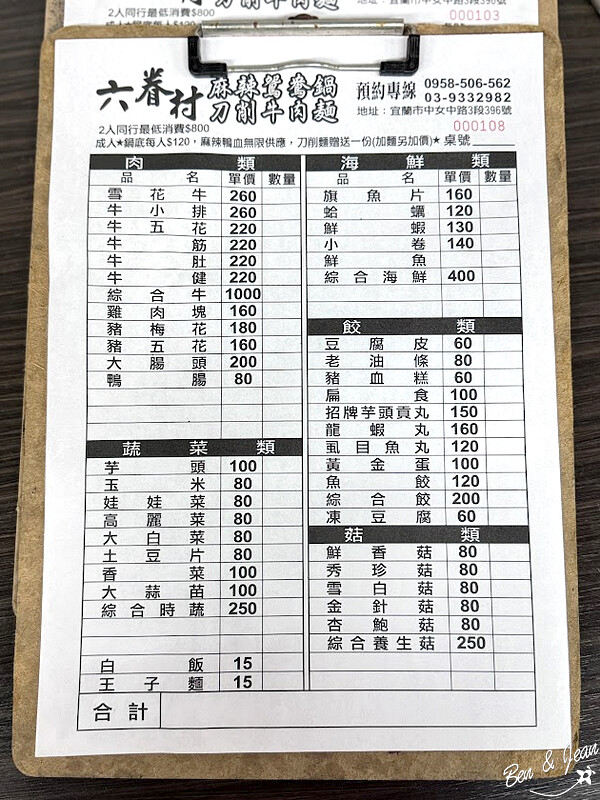 刀削牛肉麵
2人同行最低消費$800
地址：宜蘭市中女中路3段396號
000103
六眷村
麻辣鴛鴦鍋
刀削牛肉麵
預約專線 0958-506-562
03-9332982
地址：宜蘭市中女中路3段396號
2人同行最低消費$800
000108
成人★鍋底每人$120，麻辣鴨血無限供應，刀削麵贈送一份(加麵另加價)★ 桌號
肉類
品名 單價 數量
雪花牛 260
牛小排 260
牛五花 220
牛筋 220
牛肚 220
牛健 220
綜合牛 1000
雞肉塊 160
豬梅花 180
豬五花 160
大腸頭 200
鴨腸 80
蔬菜類
芋頭 100
玉米 80
娃娃菜 80
高麗菜 80
大白菜 80
土豆片 80
香菜 100
大蒜苗 100
綜合時蔬 250
白飯 15
王子麵 15
合計
海鮮類
品名 單價 數量
旗魚片 160
蛤蠣 120
鮮蝦 130
小卷 140
鮮魚
綜合海鮮 400
餃類
豆腐皮 60
老油條 80
豬血糕 60
扁食 100
招牌芋頭貢丸 150
龍蝦丸 160
虱目魚丸 120
黃金蛋 100
魚餃 120
綜合餃 200
凍豆腐 60
菇類
鮮香菇 80
秀珍菇 80
雪白菇 80
金針菇 80
杏鮑菇 80
綜合養生菇 250
Ben & Jean